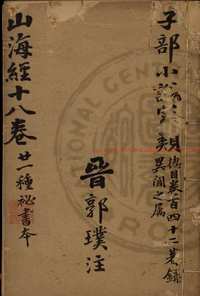 子部小說家類
總目卷百四十二著錄
異聞之屬
晉郭璞注
山海經十八卷
廿一種祕書本
NATIONAL CENTRAL